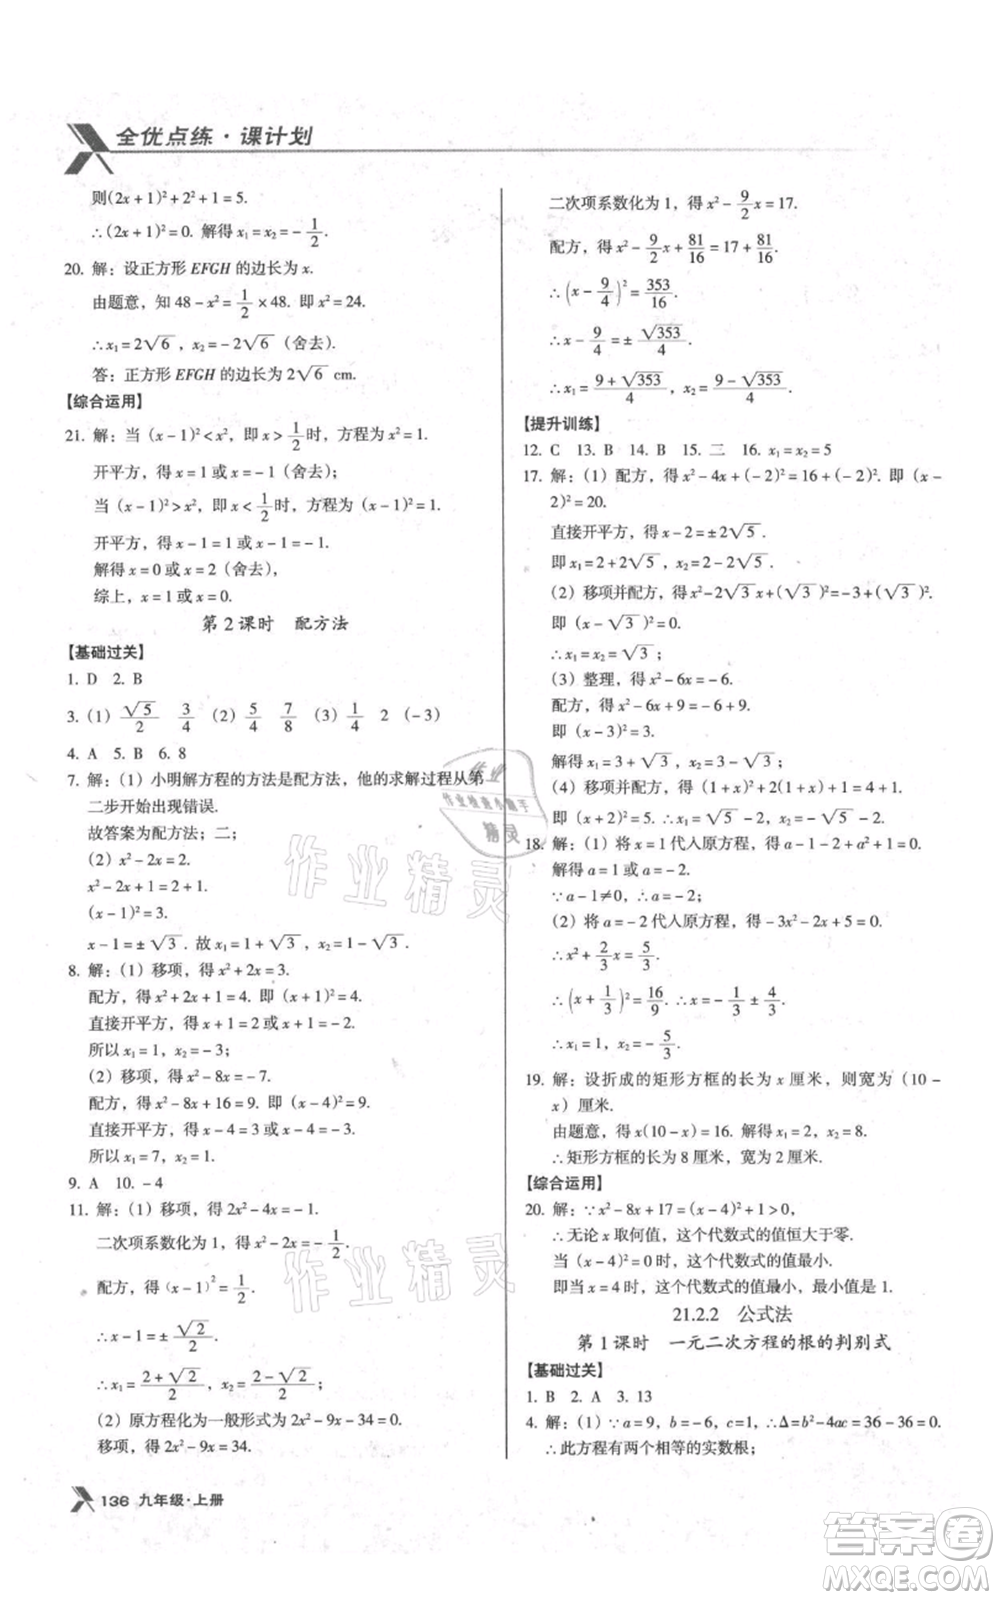 全优点练·课计划
则(2x+1)²+2²+1=5.
∴(2x+1)²=0. 解得 x₁=x₂=-1/2.
20. 解：设正方形 EFGH 的边长为 x.
由题意，知 48-x²=1/2×48. 即 x²=24.
∴x₁=2√6，x₂=-2√6（舍去）.
答：正方形 EFGH 的边长为 2√6 cm.
【综合运用】
21. 解：当（x-1）²<x²，即 x>1/2时，方程为 x²=1.
开平方，得 x=1 或 x=-1（舍去）；
当（x-1）²>x²，即 x<1/2时，方程为（x-1）²=1.
开平方，得 x-1=1 或 x-1=-1.
解得 x=0 或 x=2（舍去），
综上，x=1 或 x=0.
第 2 课时　配方法
【基础过关】
1. D 2. B
3.（1）√5/2　3/4（2）5/4　7/8（3）1/4　2（-3）
4. A 5. B 6. 8
7. 解：（1）小明解方程的方法是配方法，他的求解过程从第
二步开始出现错误.
故答案为配方法；二；
（2）x²-2x=2.
x²-2x+1=2+1.
(x-1)²=3.
x-1=±√3. 故 x₁=1+√3，x₂=1-√3.
8. 解：（1）移项，得 x²+2x=3.
配方，得 x²+2x+1=4. 即（x+1)²=4.
直接开平方，得 x+1=2 或 x+1=-2.
所以 x₁=1，x₂=-3；
（2）移项，得 x²-8x=-7.
配方，得 x²-8x+16=9. 即（x-4)²=9.
直接开平方，得 x-4=3 或 x-4=-3.
所以 x₁=7，x₂=1.
9. A 10. -4
11. 解：（1）移项，得 2x²-4x=-1.
二次项系数化为 1，得 x²-2x=-1/2.
配方，得（x-1)²=1/2.
∴x-1=±√2/2.
∴x₁=(2+√2)/2，x₂=(2-√2)/2；
（2）原方程化为一般形式为 2x²-9x-34=0.
移项，得 2x²-9x=34.
136 九年级·上册
二次项系数化为 1，得 x²-9/2x=17.
配方，得 x²-9/2x+81/16=17+81/16.
∴(x-9/4)²=353/16.
∴x-9/4=±√353/4.
∴x₁=(9+√353)/4，x₂=(9-√353)/4.
【提升训练】
12. C 13. B 14. B 15. 二 16. x₁=x₂=5
17. 解：（1）配方，得 x²-4x+(-2)²=16+(-2)². 即（x-
2)²=20.
直接开平方，得 x-2=±2√5.
即 x₁=2+2√5，x₂=2-2√5.
（2）移项并配方，得 x²-2√3x+(√3)²=-3+(√3)².
即（x-√3）²=0.
∴x₁=x₂=√3；
（3）整理，得 x²-6x=-6.
配方，得 x²-6x+9=-6+9.
即（x-3)²=3.
解得 x₁=3+√3，x₂=3-√3；
（4）移项并配方，得（1+x)²+2(1+x)+1=4+1.
即(x+2)²=5. ∴x₁=-2+√5，x₂=-2-√5.
18. 解：（1）将 x=1 代人原方程，得 a-1-2+a²+1=0.
解得 a=1 或 a=-2.
∵a-1≠0，∴a=-2.
（2）将 a=-2 代人原方程，得-3x²-2x+5=0.
∴x²+2/3x=5/3.
∴(x+1/3)²=16/9. ∴x=-1/3±4/3.
∴x₁=1，x₂=-5/3.
19. 解：设折成的矩形方框的长为 x 厘米，则宽为（10-
x）厘米.
由题意，得 x(10-x)=16. 解得 x₁=2，x₂=8.
∴矩形方框的长为 8 厘米，宽为 2 厘米.
【综合运用】
20. 解：∵x²-8x+17=(x-4)²+1>0，
∴无论 x 取何值，这个代数式的值恒大于零.
当（x-4）²=0 时，这个代数式的值最小.
即当 x=4 时，这个代数式的值最小，最小值是 1.
21.2.2　公式法
第 1 课时　一元二次方程的根的判别式
【基础过关】
1. B 2. A 3. 13
4. 解：（1）∵a=9，b=-6，c=1，∴Δ=b²-4ac=36-36=0.
∴此方程有两个相等的实数根；
作业
作业检查小助手
精灵
作业精灵
作业精灵
答案卷
MXQE.COM